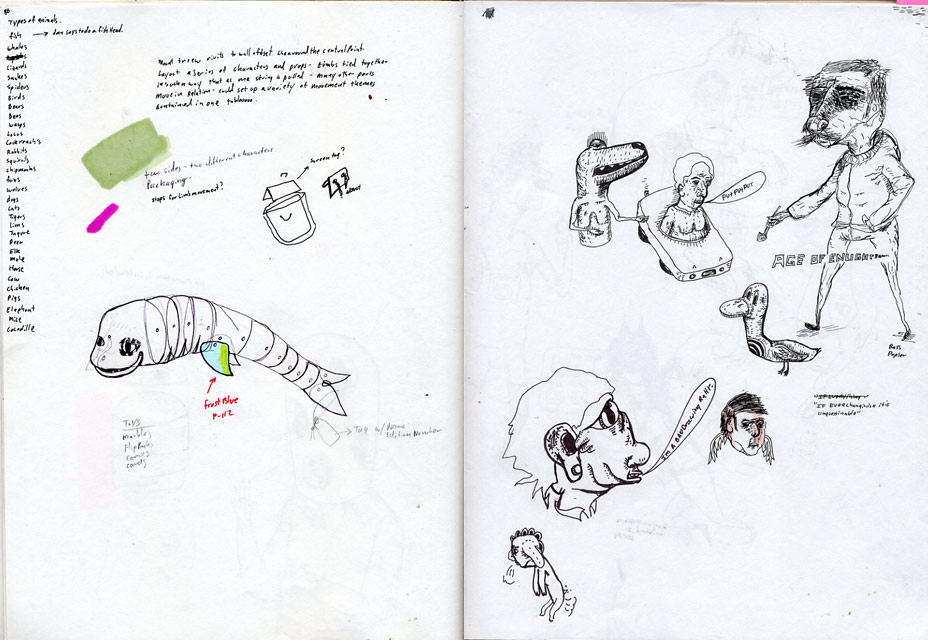 Types of animals.
fish → dan says to do a fish Head.
whales
Lizards
Snakes
Spiders
Birds
Bears
Bees
wasps
Locus
Cockroachs
Rabbits
Squirels
chipmonks
foxs
wolves
dogs
Cats
Tigers
Lions
Jagure
Deer
Elk
Mole
Horse
Cow
Chicken
Pigs
Elephant
Mice
Cocodille
Need to rew rivits to wall offset
around the central Point.
Layout a series of characters and props - Limbs tied together
in such a way that as one string is pulled - many other parts
move in relation - could set up a variety of movement themes
Contained in one tableau.
two sides - two different characters
Packaging
stops for limb movement?
screen top?
frost Blue
P-112
Tag w/ Name
Edition Number
Toys
Marbles
FlipBooks
Comics
cards
PUT PUT PUT
AGE OF ENLIGHT
Bass
I'm A BAD Drawing
"IF EVER changing its
unquestionable"